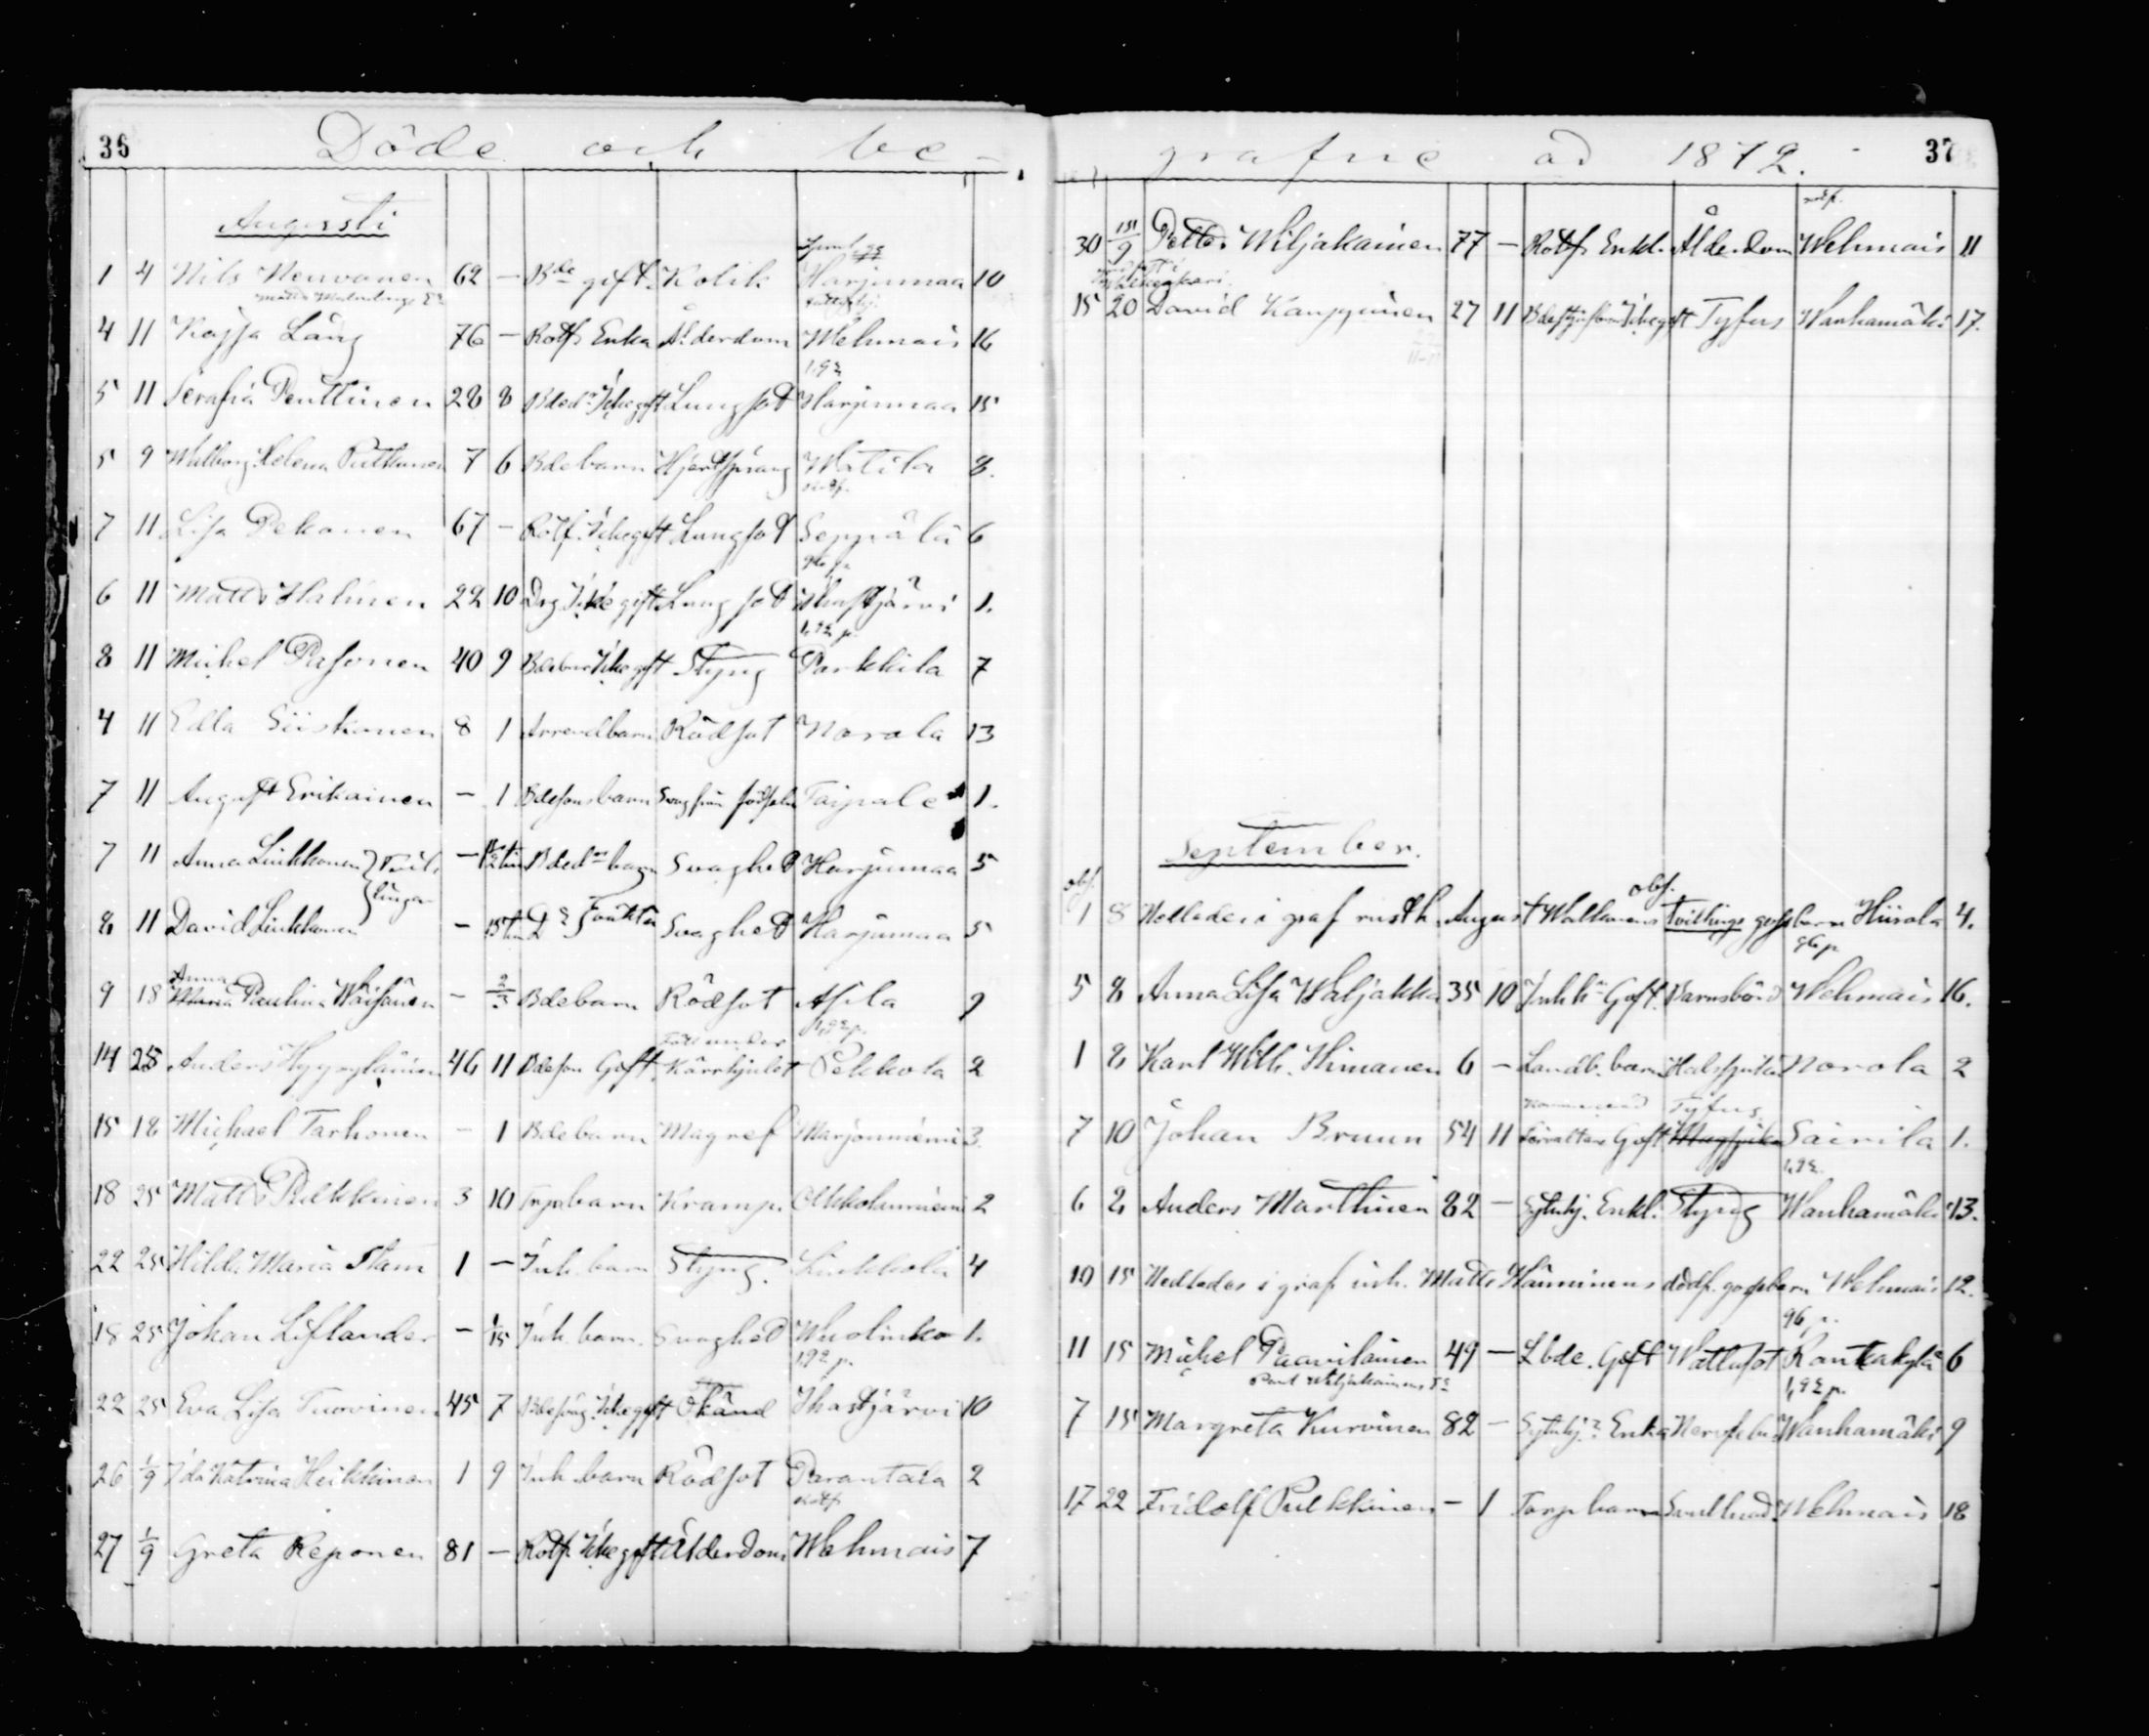 36 Döde och be-
Augusti
1 4 Nils Neuvonen 62 - Bde gift Kolik Harjumaa 10
4 11 Kajsa Lång 76 - Rotfs Enka Ålderdom Wehmais 16
5 11 Serafia Penttinen 28 8 Bded:r Icke gift Lungsot Harjumaa 15
5 9 Wilborg Helena Putkonen 7 6 Bdebarn Hjertsprång Watila 8.
7 11 Lisa Pekonen 67 - Rotf. Icke gift Lungsot Seppälä 6
6 11 Matts Halinen 22 10 Drg Icke gift Lungsot Ihastjärvi 1.
8 11 Mickel Pasonen 40 9 Icke gift Styng Parkkila 7
4 11 Edla Siiskonen 8 1 Arrendbarn Rödsot Norola 13
7 11 August Erikainen - 1 Bdesonsbarn Svag från födseln Taipale 1.
7 11 Anna Linkkonen } Tvil- - Bded:rs barn Svaghet Harjumaa 5
8 11 David Linkkonen } lingar - 15 tim D:o Svaghet Harjumaa 5
9 18 Anna Paulina Wäisänen - 2/3 Bdebarn Rödsot Asila 9
14 25 Anders Hyyryläinen 46 11 Bdeson Gift. Fall under Kärrhjulet Pekkola 2
15 18 Michael Tarhonen - 1 Bdebarn Magref Marjoniemi 3
18 25 Matts Pulkkinen 3 10 Torpbarn Kramp. Olkkolanniemi 2
22 25 Hilda Maria Stam 1 - Inh. barn Styng. Liukkola 4
18 25 Johan Liflander - 1/15 Inh. barn. Svaghet Wuolinko 1.
22 25 Eva Lisa Tuovinen 45 7 Icke gift Okänd Ihastjärvi 10
26 1/9 Ida Katrina Heikkinen 1 9 Inh. barn Rödsot Parantala 2
27 1/9 Greta Reponen 81 - Rotf. Icke gift Ålderdom Wehmais 7
grafne år 1872. 37
30 15/9 Petter Wiljakainen 77 - Rotfs Enkl. Ålderdom Wehmais 11
15 20 David Kauppinen 27 11 Icke gift Tyfus Wanhamäki 17.
September.
obs. obs.
1 8 Nedlades i graf rusth. August Walkonens tvillings gossbarn Hiirola 4.
5 8 Anna Lisa Waljakka 35 10 Inh h:u Gift. Barnsbörd Wehmais 16.
1 8 Karl Wilh. Himanen 6 - Landb. barn Halssjuka Norola 2
7 10 Johan Bruun 54 11 Förvaltare Gift Tyfus Sairila 1.
6 8 Anders Marttinen 82 - Sytnhj. Enkl. Styng Wanhamäki 13.
10 15 Nedlades i graf inh. Matts Hänninens dödf. gossbarn Wehmais 12.
11 15 Mickel Paavilainen 49 - Lbde. Gift Wattusot Rantakylä 6
7 15 Margreta Kurvinen 82 - Sytnhj. Enka Wanhamäki 9
17 22 Fridolf Pulkkinen - 1 Torpbarn Wehmais 18